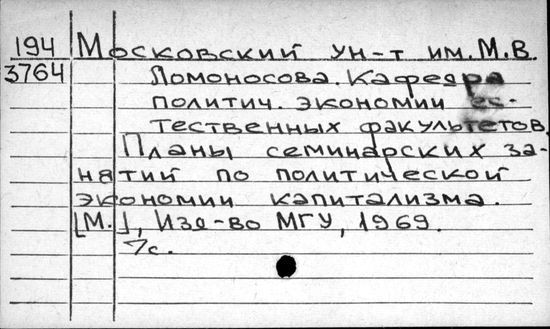 194 Московский ун-т им. М.В.
3764 Ломоносова. Кафедра
политич. экономии ес-
тественных факультетов.
Планы семинарских за-
нятий по политической
экономии капитализма.
[М.], Изд-во МГУ, 1969.
7с.